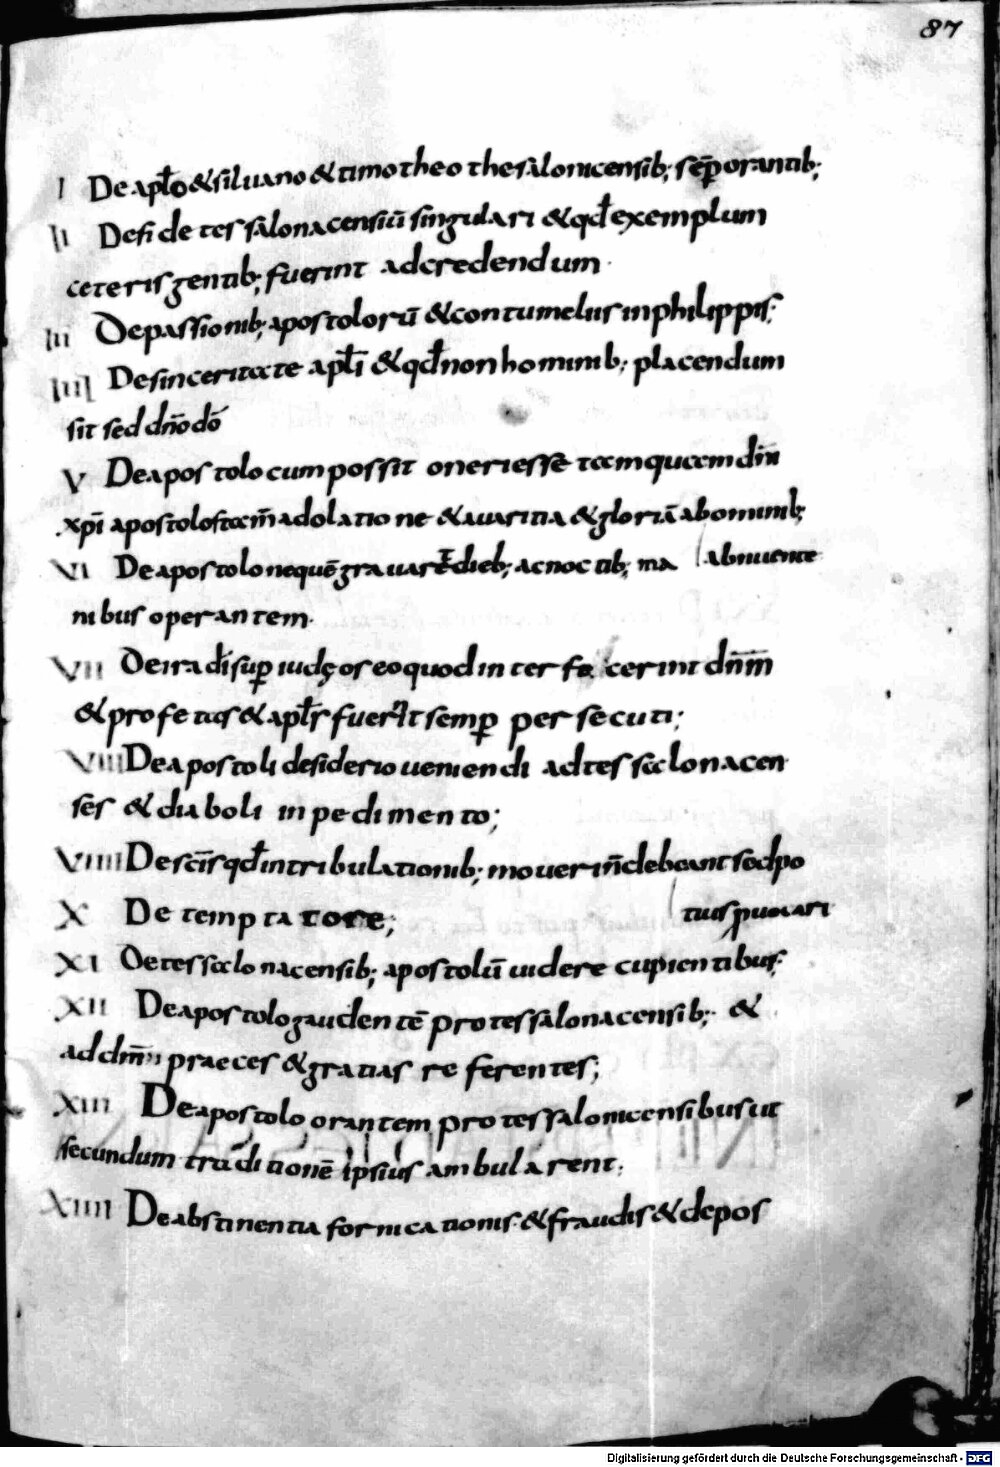 87
I De aplo & siluano & timotheo thesalonicensib; sēp orantib;
II De fide tessalonacensiū singulari & qđ exemplum
ceteris gentib; fuerint ad credendum.
III De passionib; apostolorū & contumeliis in philippis;
IIII De sinceritate apłi & qđ non hominib; placendum
sit sed dño dō
V De apostolo cum possit oneri essē tamquam
xp̄i apostolos tam̄ adolatione & auaritia & gloriā ab ominib;
VI De apostolo ne quē grauaret dieb; ac noctib; ma abnuente
nibus operantem.
VII De ira dī sup̄ iudęos eo quod inter fecerint dn̄m
& profetas & apłs fuerīt semp̄ persecuti;
VIII De apostoli desiderio ueniendi ad tessalonacen
ses & diaboli inpedimento;
VIIII De sc̄is qđ in tribulationib; moueri n̄ debeant sed po
X De temptatore; tius
XI De tessalonacensib; apostolū uidere cupientibus;
XII De apostolo gaudentē pro tessalonacensib; &
ad dm̄ praeces & gratias referentes;
XIII De apostolo orantem pro tessalonicensibus ut
secundum traditionē ipsius ambularent;
XIIII De abstinentia fornicationis & fraudis & depos
Digitalisierung gefördert durch die Deutsche Forschungsgemeinschaft - DFG